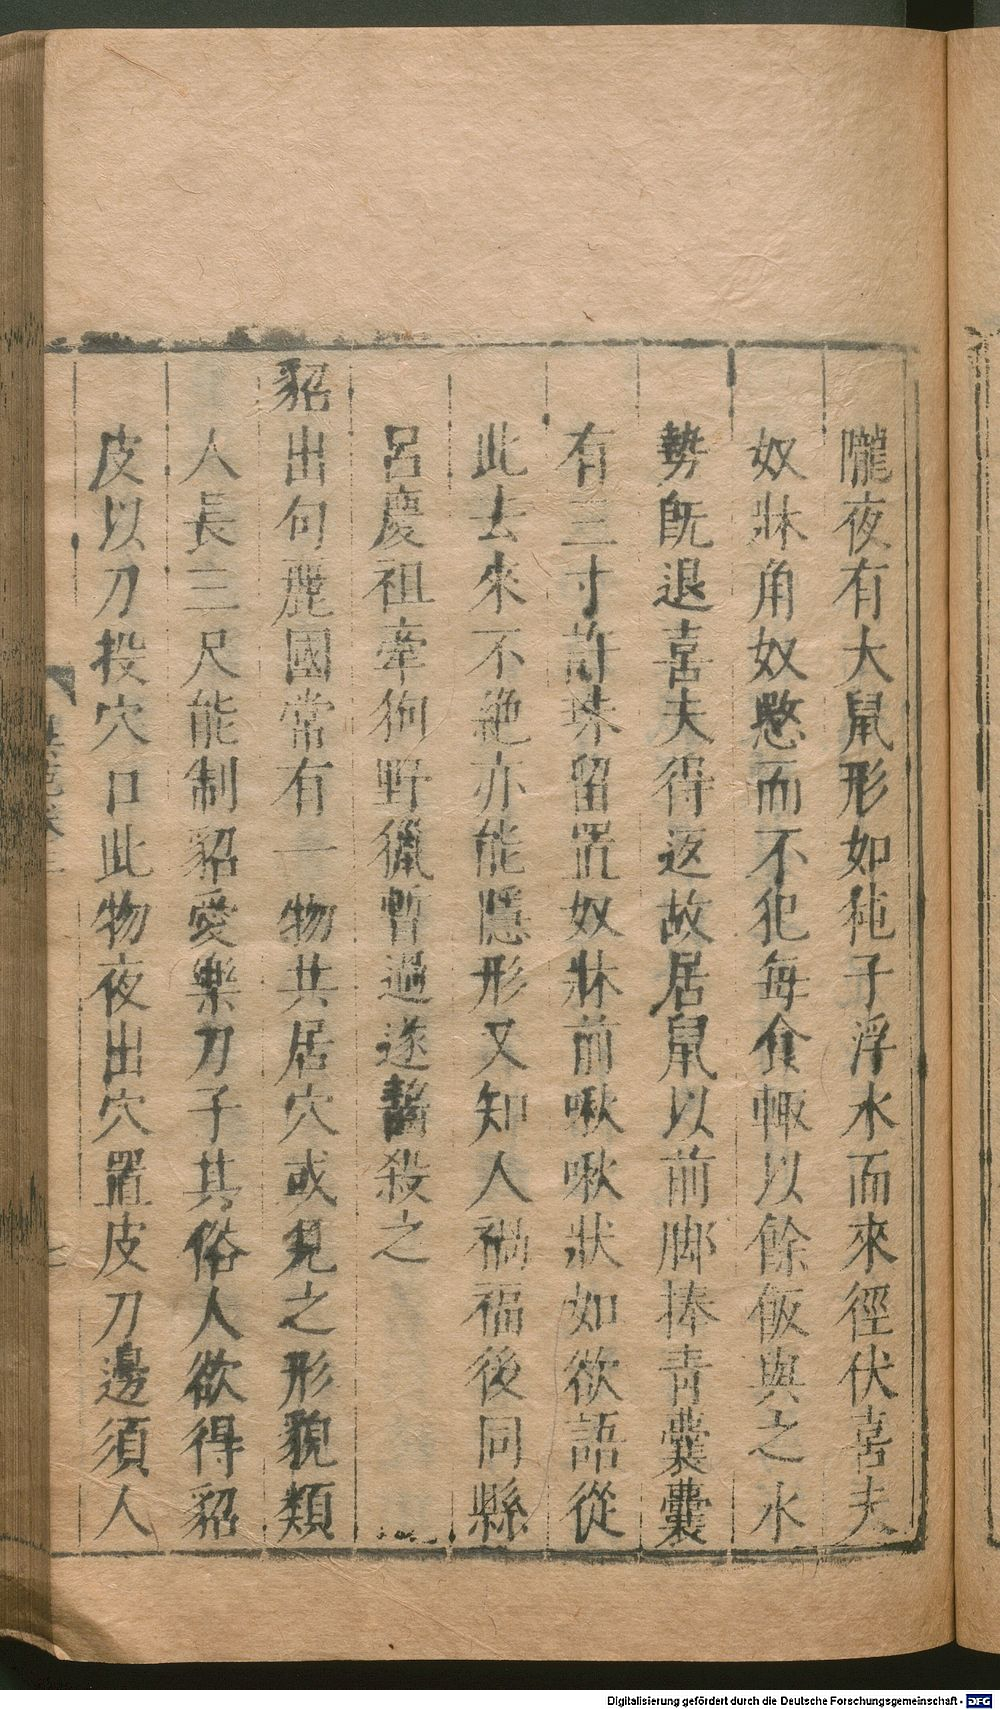 隴夜有大鼠形如㹠子浮水而來徑伏喜夫
奴牀角奴愍而不犯每食輙以餘飯與之水
勢旣退喜夫得返故居鼠以前脚捧青囊囊
有三寸許珠留置奴牀前啾啾狀如欲語從
此去來不絶亦能隱形又知人禍福後同縣
呂慶祖牽狗野獵暫過遂齧殺之
貂出句麗國常有一物共居穴或見之形貌類
人長三尺能制貂愛樂刀子其俗人欲得貂
皮以刀投穴口此物夜出穴置皮刀邊須人
Digitalisierung gefördert durch die Deutsche Forschungsgemeinschaft - DFG